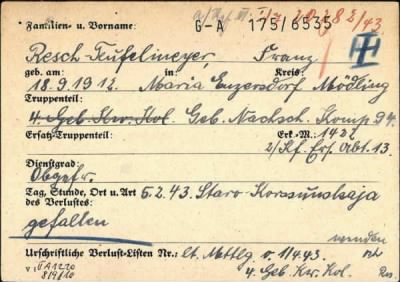 Familien- u. Vorname:
G-A 175/6535
Resch-Teufelmeyer, Franz
geb. am: in: Kreis:
18.9.1912 Maria Enzersdorf Mödling
Truppenteil:
4. Geb. Kw. Kol. Geb. Nachsch. Komp. 94
Ersatz-Truppenteil: Erk.-M. 1432
2/Kf. Ers. Abt. 13.
Dienstgrad:
Obgefr.
Tag, Stunde, Ort u. Art 5.2.43. Staro Korssunskaja
des Verlustes:
gefallen
wenden
Urschriftliche Verlust-Listen Nr.: lt. Mttlg v. 1/4.43.
4. Geb. Kw. Kol.